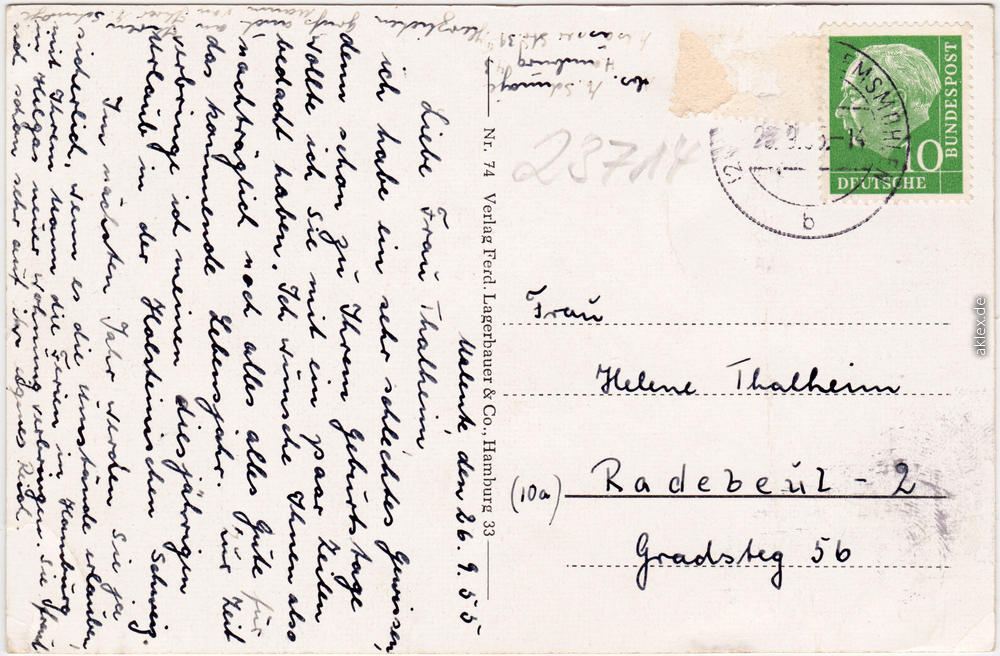 Malente, den 26.9.55
Liebe Frau Thalheim,
ich habe ein sehr schlechtes Gewissen,
denn schon zu Ihrem Geburtstage
wollte ich Sie mit ein paar Zeilen
bedacht haben. Ich wünsche Ihnen also
nachträglich noch alles alles Gute für
das kommende Lebensjahr. Zur Zeit
verbringe ich meinen diesjährigen
Urlaub in der Holsteinischen Schweiz.
Im nächsten Jahr werden Sie ja
sicherlich, wenn es die Umstände erlauben,
mit Ihrem Mann die Ferien in Hamburg
in Helgas neuer Wohnung verbringen. Sie freut
sich schon sehr auf Ihr
Herzlichen Gruß
Hamburg
Nr. 74 Verlag Ferd. Lagerbauer & Co., Hamburg 33
28714
10
DEUTSCHE
BUNDESPOST
b
Frau
Helene Thalheim
(10a) Radebeul - 2
Gradsteg 56
aklex.de